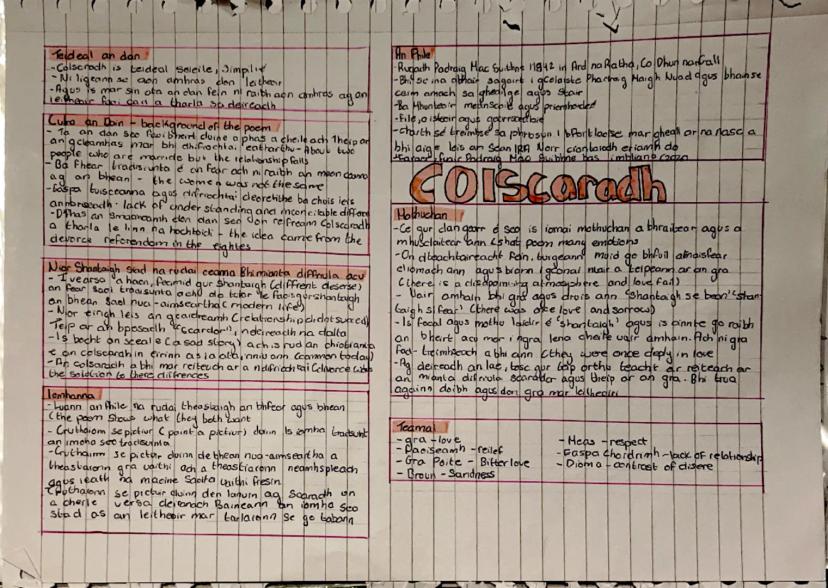 Teideal an dan
-Colscaradh is teideal soleile, simplif
- Ni ligeann se aon ambras don leitheir
-Agus is mar sin ata an dan fein ni raibh aon ambras ag an
leitheoir faoi cad a tharla sa deireadh
Culra an Dain - background of the poem
- Ta an dan seo faoi bheirt duine a phas a cheile ach Theip ar
an gcleamhnas mar bhi difriochtai eatharthu - About two
people who are married but the relationship fails
- Ba fhear traidisiunta e an fear ach ni raibh an meon ceanna
ag an bhean - the women was not the same
-Easpa tuisceanna agus difriochtai dioreithe ba chois leis
- lack of under standing and
-Dfhas an smaoineamh don dan seo don refreann Colscaradh
a tharla le linn na hochtoidi - the idea came from the
devorce referendom in the eighties
Nior Shantaigh siad na rudai ceanna Bhi mianta difriula acu
- I vearsa a haon, feicimid gur Shantaigh (diffrent deserse)
an fear saol traisunta achu ab
an bhean Saol nua-aimseartha (modern life)
- Nior eirigh leis an gcaidreamh (relationship did not suceed)
Teip ar an bposadh "scardar", ndeireadh na dalta
- Is bocht an sceal e (a sad story) ach is rud an
e an colscarah in eirinn as la ata inniu ann (common today)
- An colsaradh a bhi mar reiteach ar a ndifriochtai (divorce was
the solution to there diffrences
Iomhanna
- Luann an Phile na rudai theastaigh an bhfear agus bhean
(the poem shows what they both want
- Cruthaiom se pictiur (paint a pictiur) duinn Is iomha traidsunt
an imoha seo traidisiunta
-Cruthaim se pictur duinn de bhean nua-aimseartha a
theastaionn gra uaithi ach a theastaionn neamhspleach
agus leath na maoine saolta uaithi freisin
Cruthaionn se pictur duinn den lanuin ag Scaradh on
a cheile versa deireanach Baineann an iomha seo
stad as an leitheoir mar tarlaionn se go tobann
An Phile
- Rugadh Padraig Mac Suibhne i 1942 in Ard na Ratha, Co Dhun na nGall
- Bhi se ina abhair sagairt i gColaiste Phadraig Maigh Nuad agus bhain se
ceim amach sa ghaeilge agus stair
-Ba Mhunteoir meanscoile agus priomhoide e
-File, aisteoir agus gearrscealai e
-Chaith se treimhse sa phriosun i bPort Laoise mar gheall ar na nasc a
bhi aige leis an Sean IRA Nior cionlaiodh eriamh do
Padraig Mac Suibhne bas imbliana 2020
Colscaradh
Mothuchan
-Ce gur dan gearr e seo is iomai mothuchan a bhraitear agus a
mhusclaitear ann (shot poem many emotions
- On dtachtaireacht Fein, tuigeann muid go bhfuil atmaisfear
diomach ann agus bronn i gconai nuair a teipeann ar an gra
(there is a disapoiming atmosphere and love fail)
- Uair amhain bhi gra agus drois ann "shantaigh se bean" "shan
taigh si fear" (there was once love and sorrow)
- Is focal agus motho laidir e "shantaigh" agus is cinnte go raibh
an bheirt acu mor i ngra lena cheile uair amhain. Ach ni gra
Fad- treimhseach a bhi ann (they were once deeply in love
-Ag deireadh an lae, tosc gur loip orthu teacht ar reteach ar
an mianta difriula scaradar agus theip ar an gra. Bhi trua
againn doibh agus don gra mar leitheoiri
Teamai
- gra - love
- Faoiseamh - reilef
- Gra Poite - Bitter love
- Broun - Sandness
- Meas - respect
- Easpa Chaidrimh - lack of relationship
- Dioma - contrast of disere